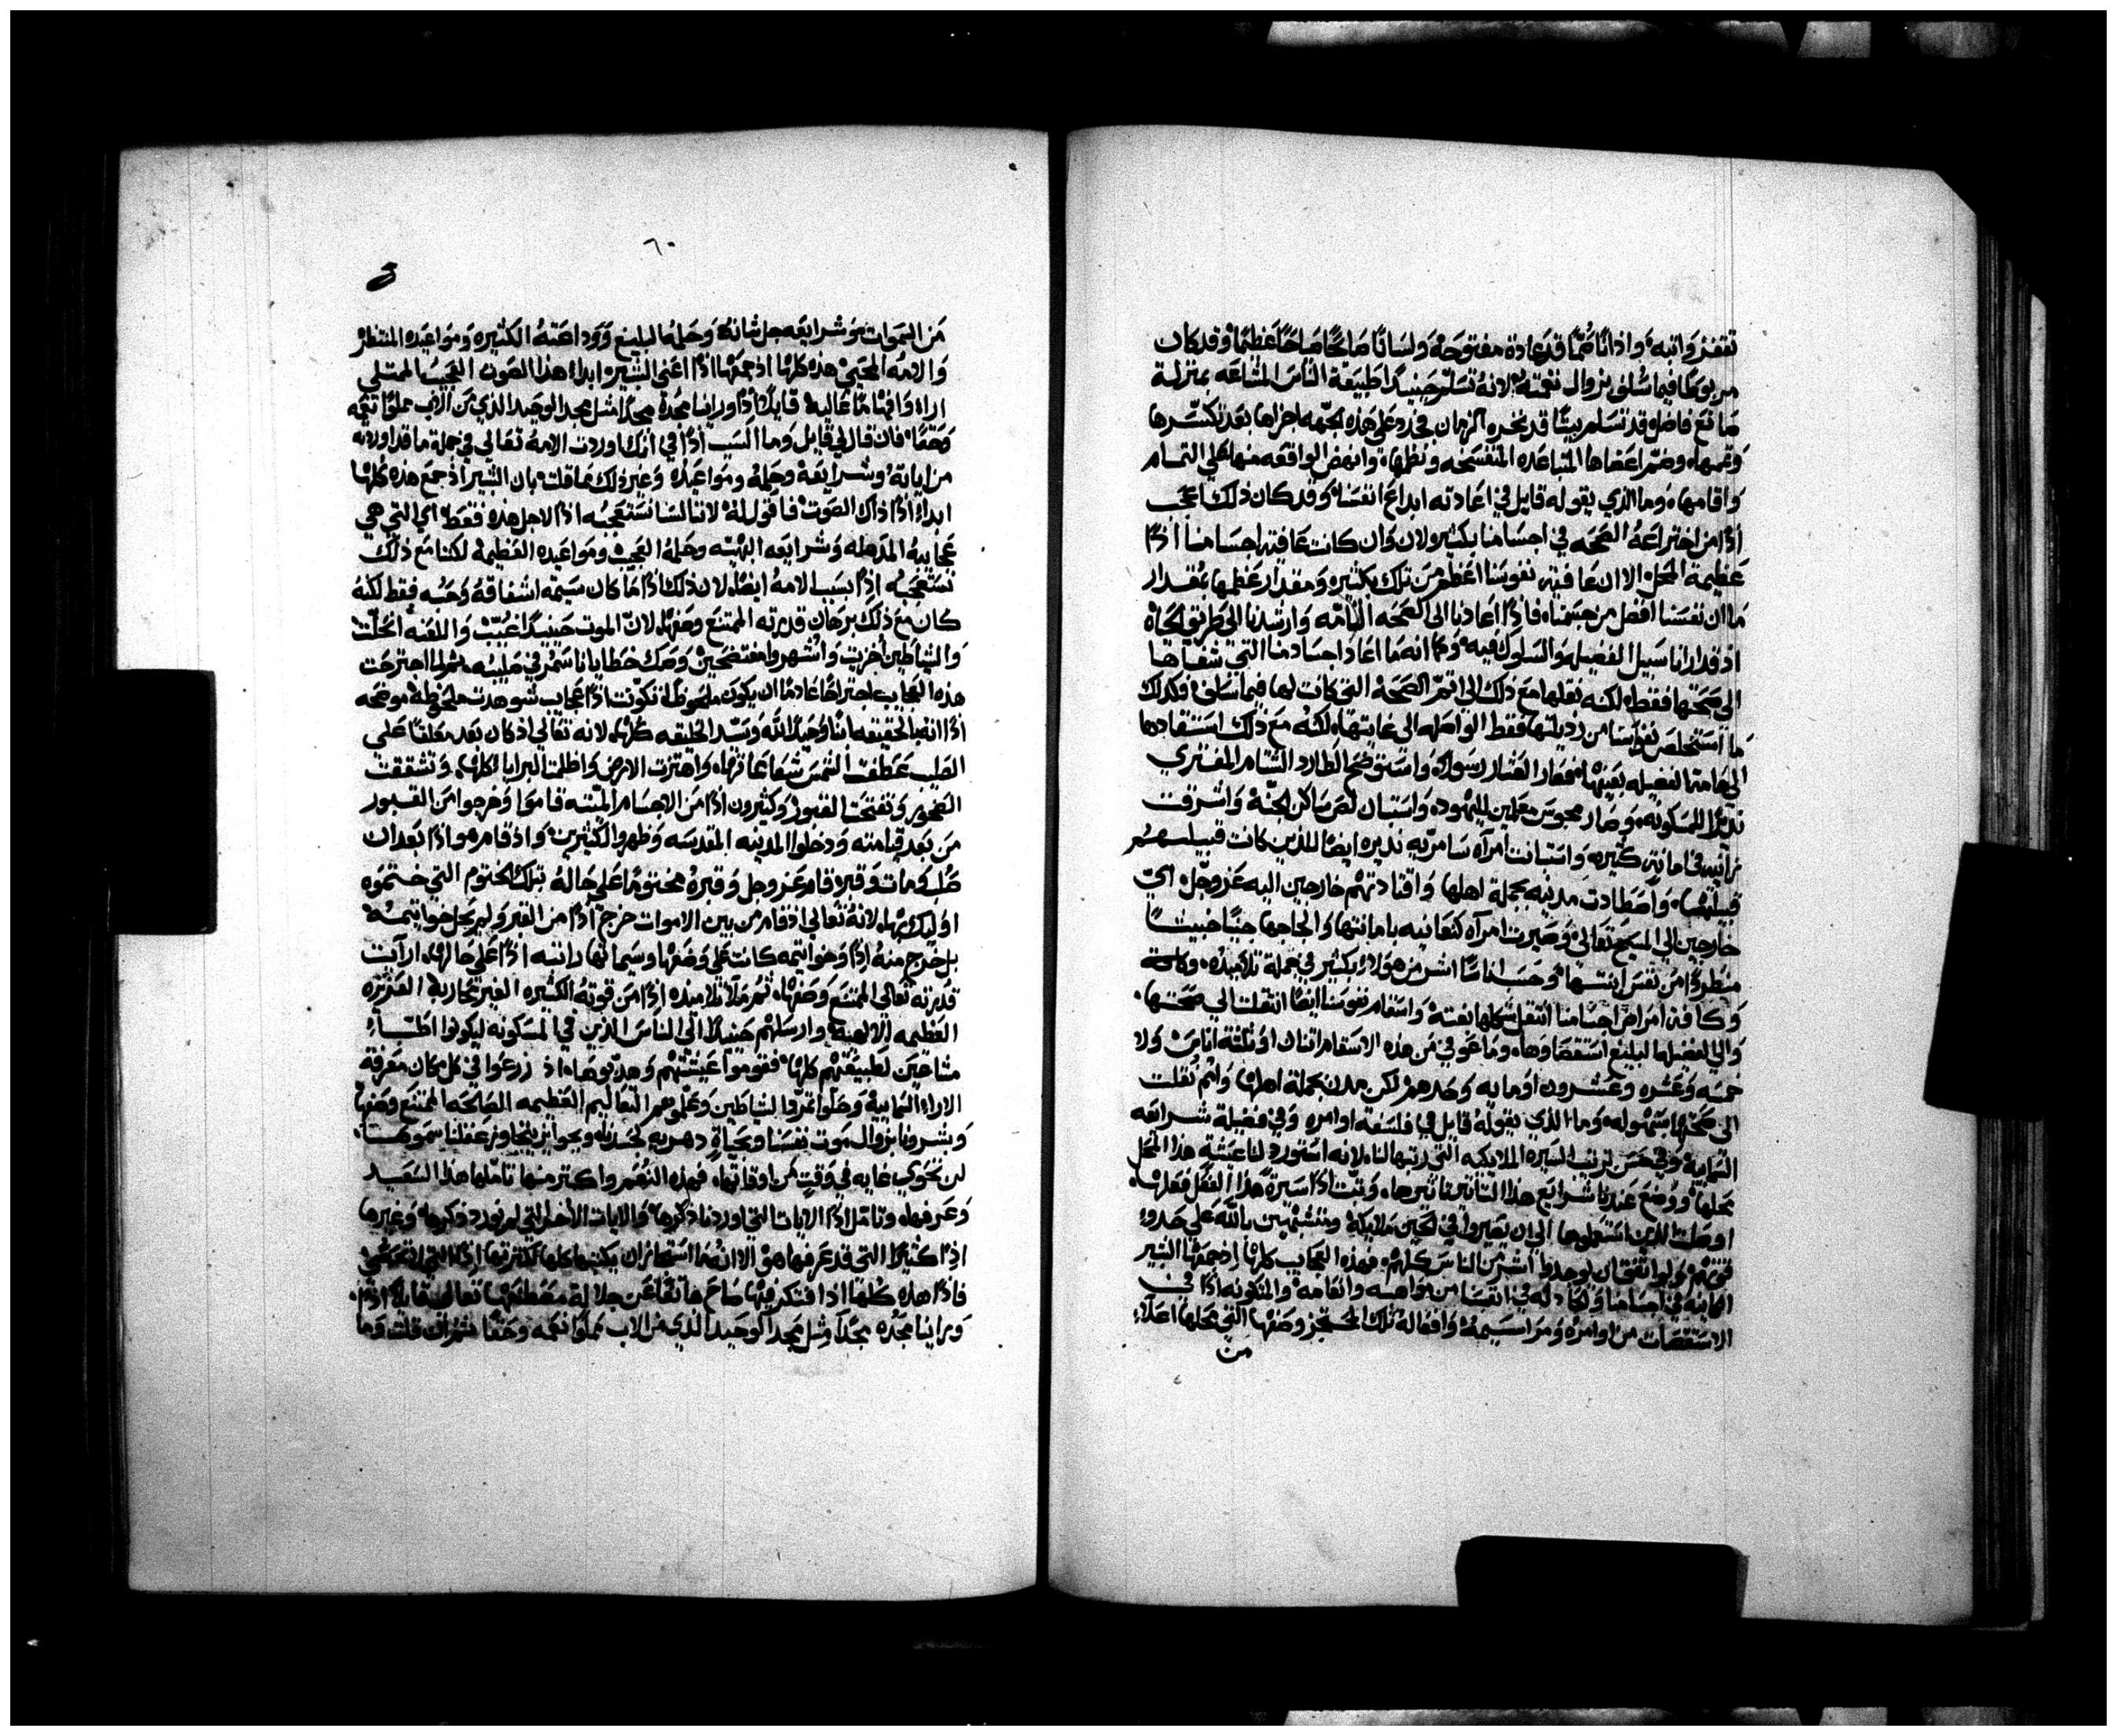 تقفذ واتبة واذانًا صمًا قد عادة مفتوحة ولسانًا صايحًا صياحًا عظيمًا وقد كان
مربوطًا فيما سلف بزوال نغمته لانه تسلم حينيذ اطبيعة الناس المشاعه بمنزلة
صانع فاضل قد تسلم بيتًا قد نخره الزمان فجدد على هذه الجهه اجزاها بعد تكسرها
وتممها وضم اعضاها المتباعده المتفسخه ونظمها وانهض الواقعه منها على التمام
واقامها وما الذي يقوله قايل في اعادته ابداع انفسنا وقد كان ذلك اعجب
اذًا من اختراعه الصحه في اجسامنا بكثير ولان وان كانت عافية اجسامنا اذًا
عظيمة المحل الا ان عافية نفوسنا اعظم من تلك بكثير ومقدار عظمها بمقدار
ما ان نفسنا افضل من جسمنا فاذًا اعادنا الى الصحه التامه وارشدنا الى طريق الحياة
اذ قد ارانا سبيل الفضيله والسلوك فيه وكما انه ما اعاد اجسادنا التي شفاها
الى صحتها فقط لكنه نقلها مع ذلك الى اتم الصحة التي كانت لها فيما سلف فكذلك
ما استخلص نفسنا من رذيلتها فقط الواصله الى غايتها لكنه مع ذلك استقادها
الى هامة الفضيله بعينها فصار العشار رسولًا واستوضح الطارد الشتام المفتري
نذيرًا للمسكونه وصار مجوس معلمين لليهود واستبان لص ساكن الجنة واشرقت
زانيه في امانة كثيره واستبانت امرآه سامريه نذيره ايضًا للذين كانت قبيلتهم
قبيلتها واصطادت مدينه بجملة اهلها واقتادتهم خارجين اليه عز وجل اي
خارجين الى المسيح تعالى وصيرت امرآه كنعانيه بامانتها والحاجها جنيًا خبيثًا
منطردًا من نفس ابنتها وحسب اناسًا اشر من هولاء بكثير في جملة تلاميذه وكافة
وكافة امراض اجسامنا انتقل شكلها بغتة واسقام نفوسنا ايضًا انتقلت الي صحتها
والي الفضيله البليغ استقصاوها وما عوفي من هذه الاسقام اثنان او ثلثة اناس ولا
خمسه وعشره وعشرون او مايه وحدهم لكن مدن بجملة اهلها وامم نقلت
الى صحتها بسهوله وما الذي يقوله قايل في فلسفة اوامره وفي فضيلة شرايعه
السمايية وفي حسن ترتيب السيره الملايكيه التي رتبها لنا لانه استورد لنا عيشة هذا المحل
محلها ووضع عندنا شرايع هذا التاثير تاثيرها وثبت اذًا سيرةً هذا الفعل فعلها
اوصلت الذين استعملوها الي ان يصيروا في الحين ملايكة ومتشبهين بالله علي حدود
قوتهم ولو اتفق ان يوجدوا اشر من الناس كلهم فهذه العجايب كلها اذ جمعها البشير
الكاينه في اجسامنا والحادثه في انفسنا من مواهبه وانعامه والمتكونه اذًا في
الاستقصات من اوامره ومراسيمه وافعاله تلك المعجز وصفها التي محلها اعلاء
من
٦٠
من السموات وشرايعه جل شانه وحلمه البليغ ووداعته الكثيره ومواعيده المنتظره
والامه المحيي هذه كلها اذ جمعها اذًا اعني البشير ابداء هذا الصوت العجيب الممتلي
اراء وافهامًا عالية قايلًا اذًا وراينا مجدة مجدًا مثل مجد الوحيد الذي من الاب مملوًا نعمه
وحقًا فان قال لي قايل وما السبب اذًا في انك اوردت الامه تعالي في جملة ما قد اوردته
من اياته وشرايعه وحلمه ومواعيده وغير ذلك مما قلت بان البشير اذ جمع هذه كلها
ابداء اذًا ذاك الصوت فاقول له لاننا لسنا نستعجبه اذًا لاجل هذه فقط اي التي هي
عجايبه المذهله وشرايعه البهيه وحلمه العجيب ومواعيده العظيمه لكننا مع ذلك
نستعجبه اذًا بسبب الامه ايضًا لان ذلك اذًا ما كان سيمة اشفاقه وحبه فقط لكنه
كان مع ذلك برهان قدرته الممتنع وصفها لان الموت حينيذ اغتب واللعنه انحلت
والشياطين اخزيت واشهروا مفتضحين وصك خطايانا سمر في صليبه ثم لما اجترحت
هذه العجايب اجتراحًا عادمًا ان يكون ملحوظًا تكونت اذًا عجايب شوهدت ملحوظة موضحه
اذًا انه بالحقيقه ابنًا وحيدًا لله وسيد الخليقه كلها لانه تعالي اذ كان بعد معلقًا علي
الصليب عطفت الشمس شعاعاتها واهتزت الارض واظلمت البرايا كلها وتشققت
الصخور وتفتحت القبور وكثيرون اذًا من الاجسام الميته قاموا وخرجوا من القبور
من بعد قيامته ودخلوا المدينه المقدسه وظهروا لكثيرين واذ قام هو اذًا بعد ان
صلب ومات وقبر قام عز وجل وقبره مختومًا علي حاله بتلك الختوم التي ختموه
اوليك بها لانه تعالي اذ قام من بين الاموات خرج اذًا من القبر ولم يحل خواتيمه
بل خرج منه اذًا وخواتيمه كانت علي وضعها وسيماتها راتبه اذًا علي حالها ارآيت
قدرته تعالي الممتنع وصفها ثم ملآ تلاميذه اذًا من قوته الكثيره الغير محاربه الغزيره
العظيمه الالهية وارسلهم حينيذ الى الناس الذين في المسكونه ليكونوا اطبآء
مشاعين لطبيعتهم كلها فقوموا عيشتهم وهذبوها اذ زرعوا في كل مكان معرفة
الاراء السماييه وحلوا تمرد الشياطين وعلموهم التعاليم العظيمه الصالحه الممتنع وصفها
وبشرونا بزوال موت نفسنا وبحياةٍ دهريه لجسدنا وبجوايز يتجاوز عقلنا سموها
لن نحوي غايه في وقتٍ من اوقاتها فهذه النعم واكثر منها تاملها هذا السعيد
وعرفها وتامل اذًا الايات التي اوردنا ذكرها والايات الأخر التي لم نورد ذكرها وغيرها
اذًا كثيرًا التي قد عرفها هو الا انه ما استجاز ان يكتبها كلها لكثرتها اذًا التي لا تحصي
فاذًا هذه كلها اذا افتكر فيها صاح هاتفًا عن جلالة معطيها تعالي قايلًا اذًا
وراينا مجده مجدًا مثل مجد الوحيد الذي من الاب مملوًا نعمه وحقًا شهران قلت وما